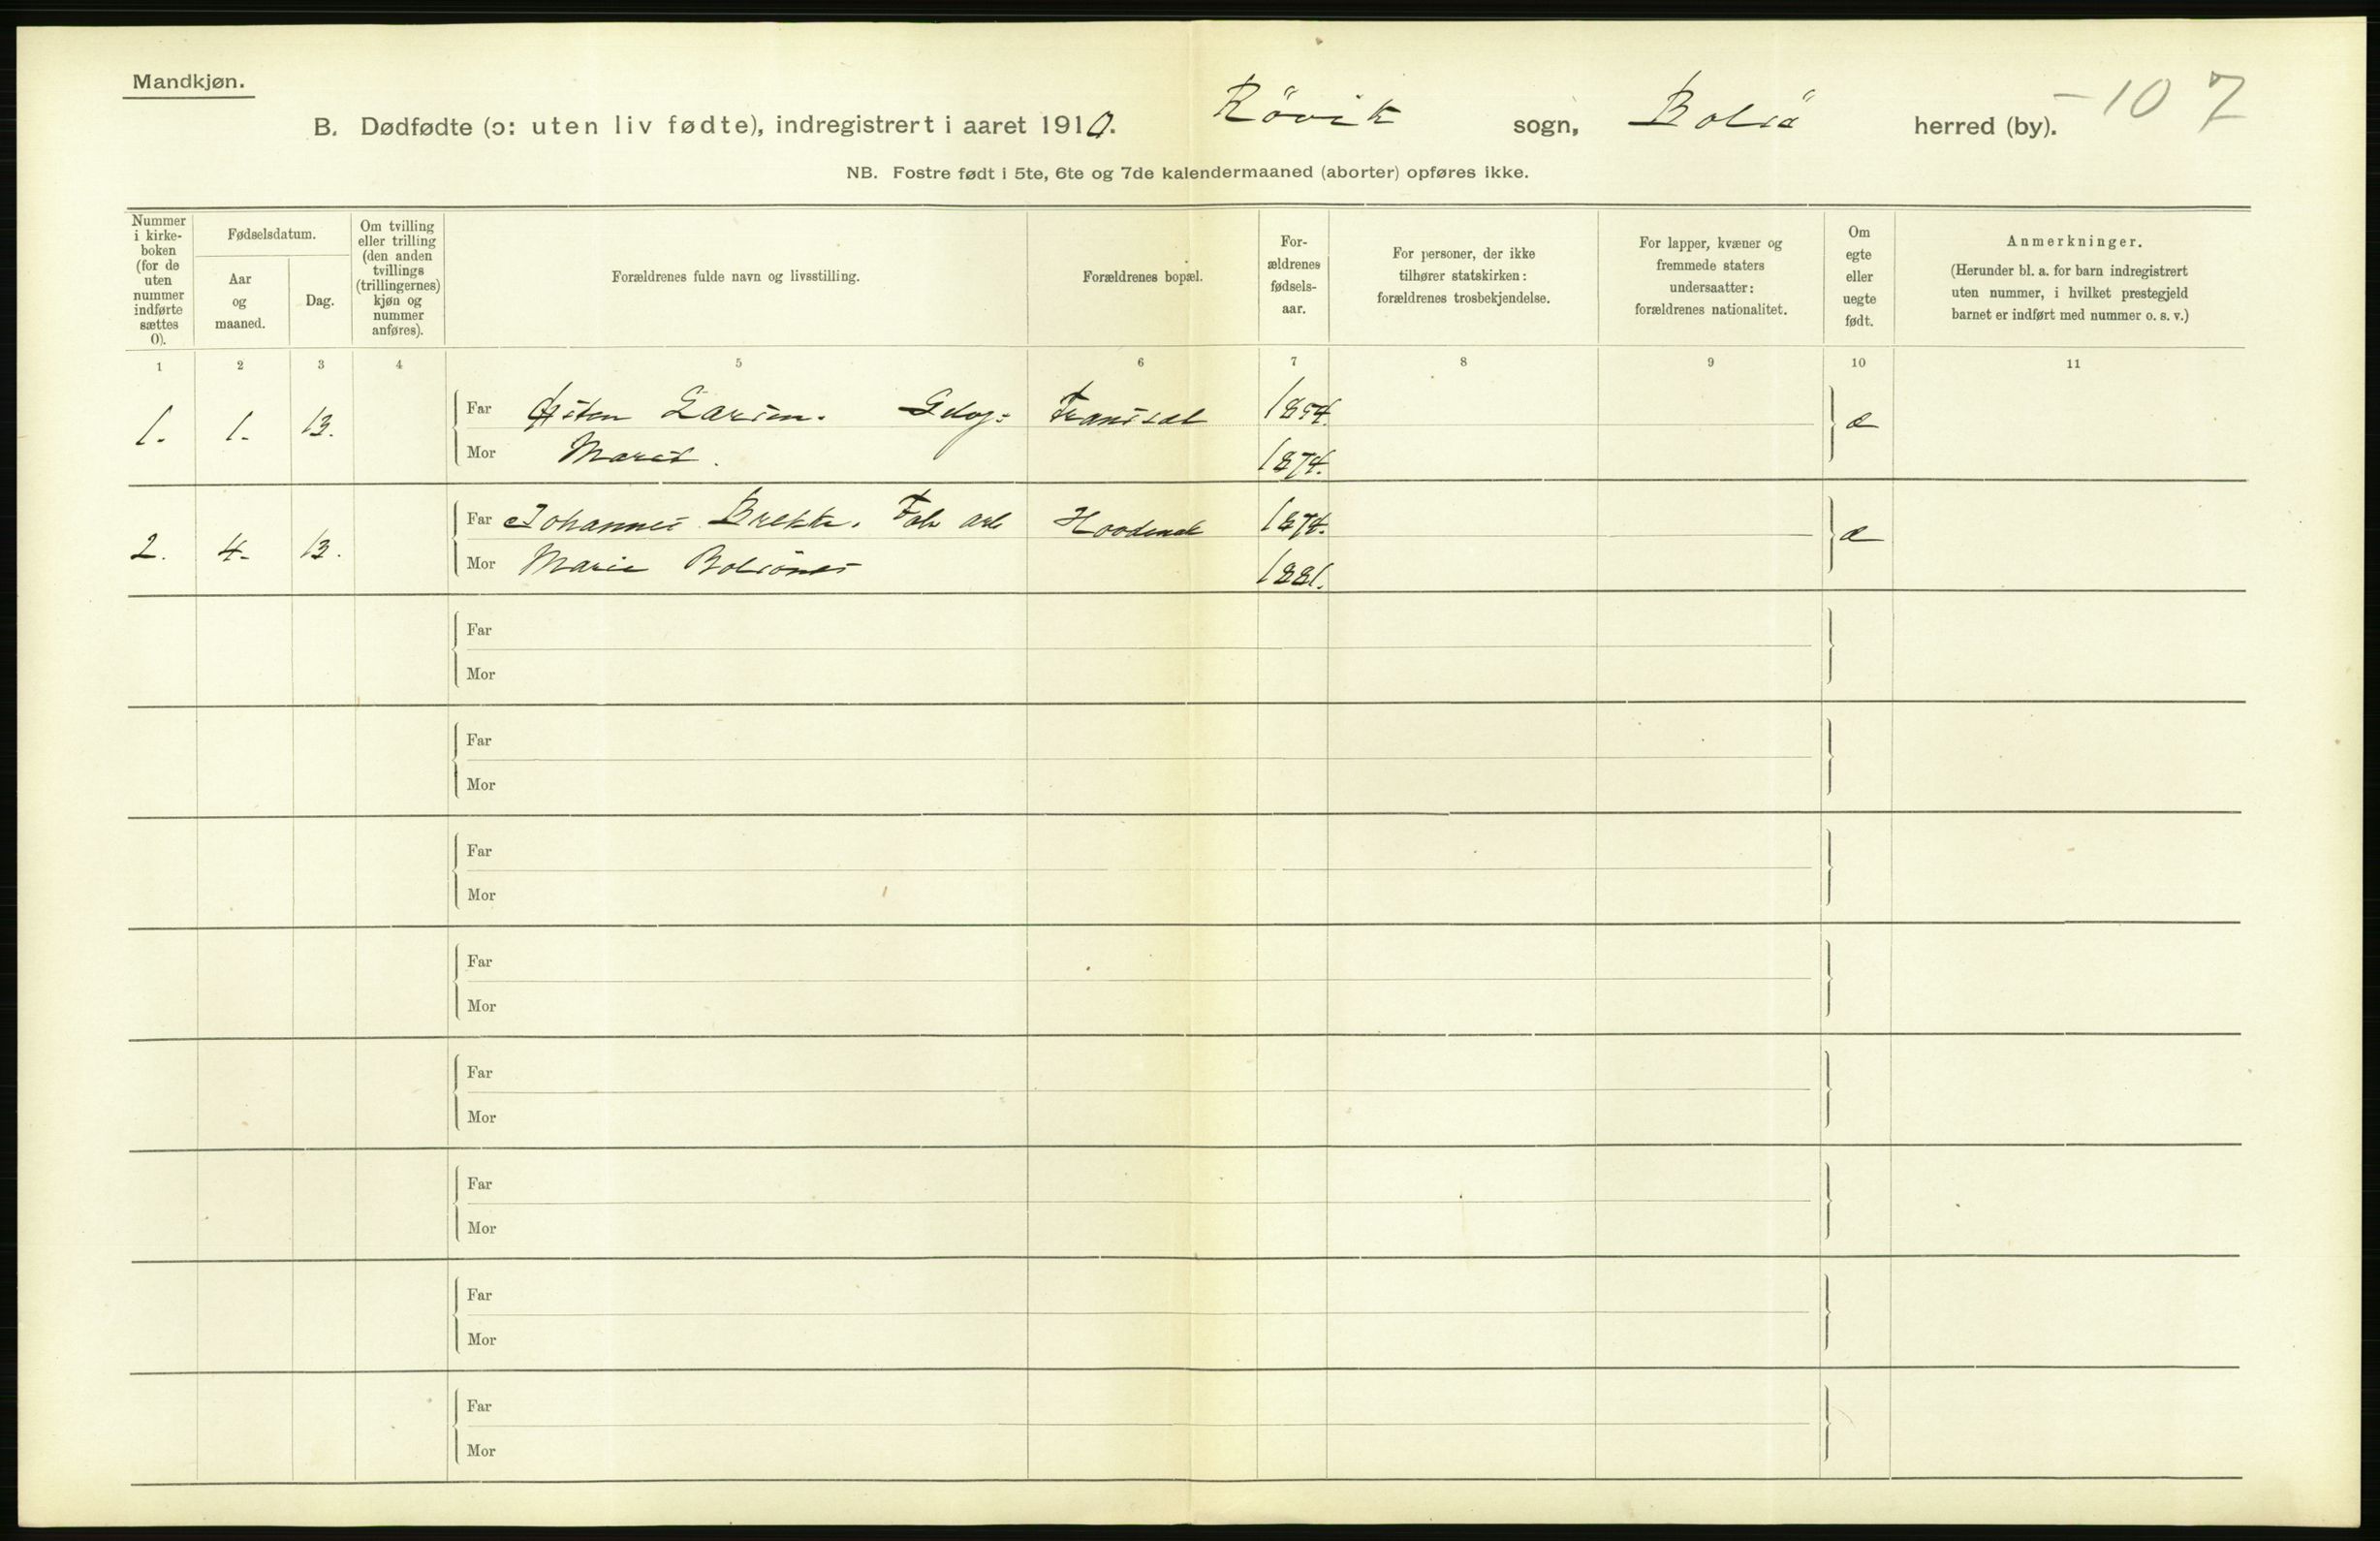 Mandkjøn.
B. Dødfødte (ɔ: uten liv fødte), indregistrert i aaret 1910. Rövik sogn, Bolsö herred (by). 107
NB. Fostre født i 5te, 6te og 7de kalendermaaned (aborter) opføres ikke.
Nummer i kirkeboken (for de uten nummer indførte sættes 0).
Fødselsdatum.
Aar og maaned.
Dag.
Om tvilling eller trilling (den anden tvillings (trillingernes) kjøn og nummer anføres).
Forældrenes fulde navn og livsstilling.
Forældrenes bopæl.
Forældrenes fødselsaar.
For personer, der ikke tilhører statskirken: forældrenes trosbekjendelse.
For lapper, kvæner og fremmede staters undersaatter: forældrenes nationalitet.
Om egte eller uegte født.
Anmerkninger.
(Herunder bl. a. for barn indregistrert uten nummer, i hvilket prestegjeld barnet er indført med nummer o. s. v.)
1 2 3 4 5 6 7 8 9 10 11
1. 1. 13. Far Østen Larsen. 1854. æ
Mor Marit. 1874.
2. 4. 13. Far Johannes Brekke. Fab arb 1874. æ
Mor Marie Bolsönes 1881.
Far
Mor
Far
Mor
Far
Mor
Far
Mor
Far
Mor
Far
Mor
Far
Mor
Far
Mor